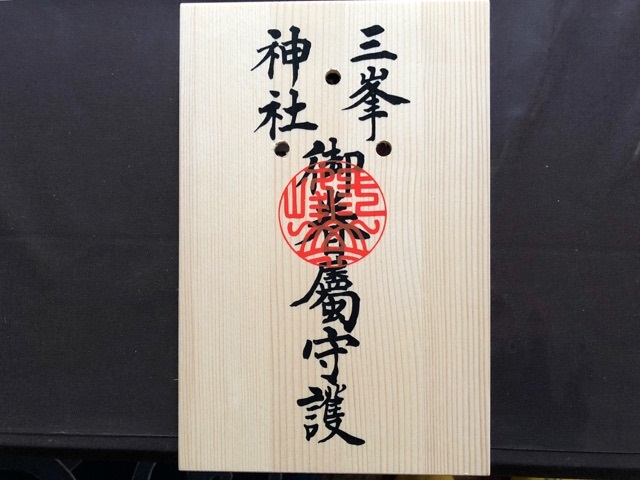 三峯
神社
御眷屬守護